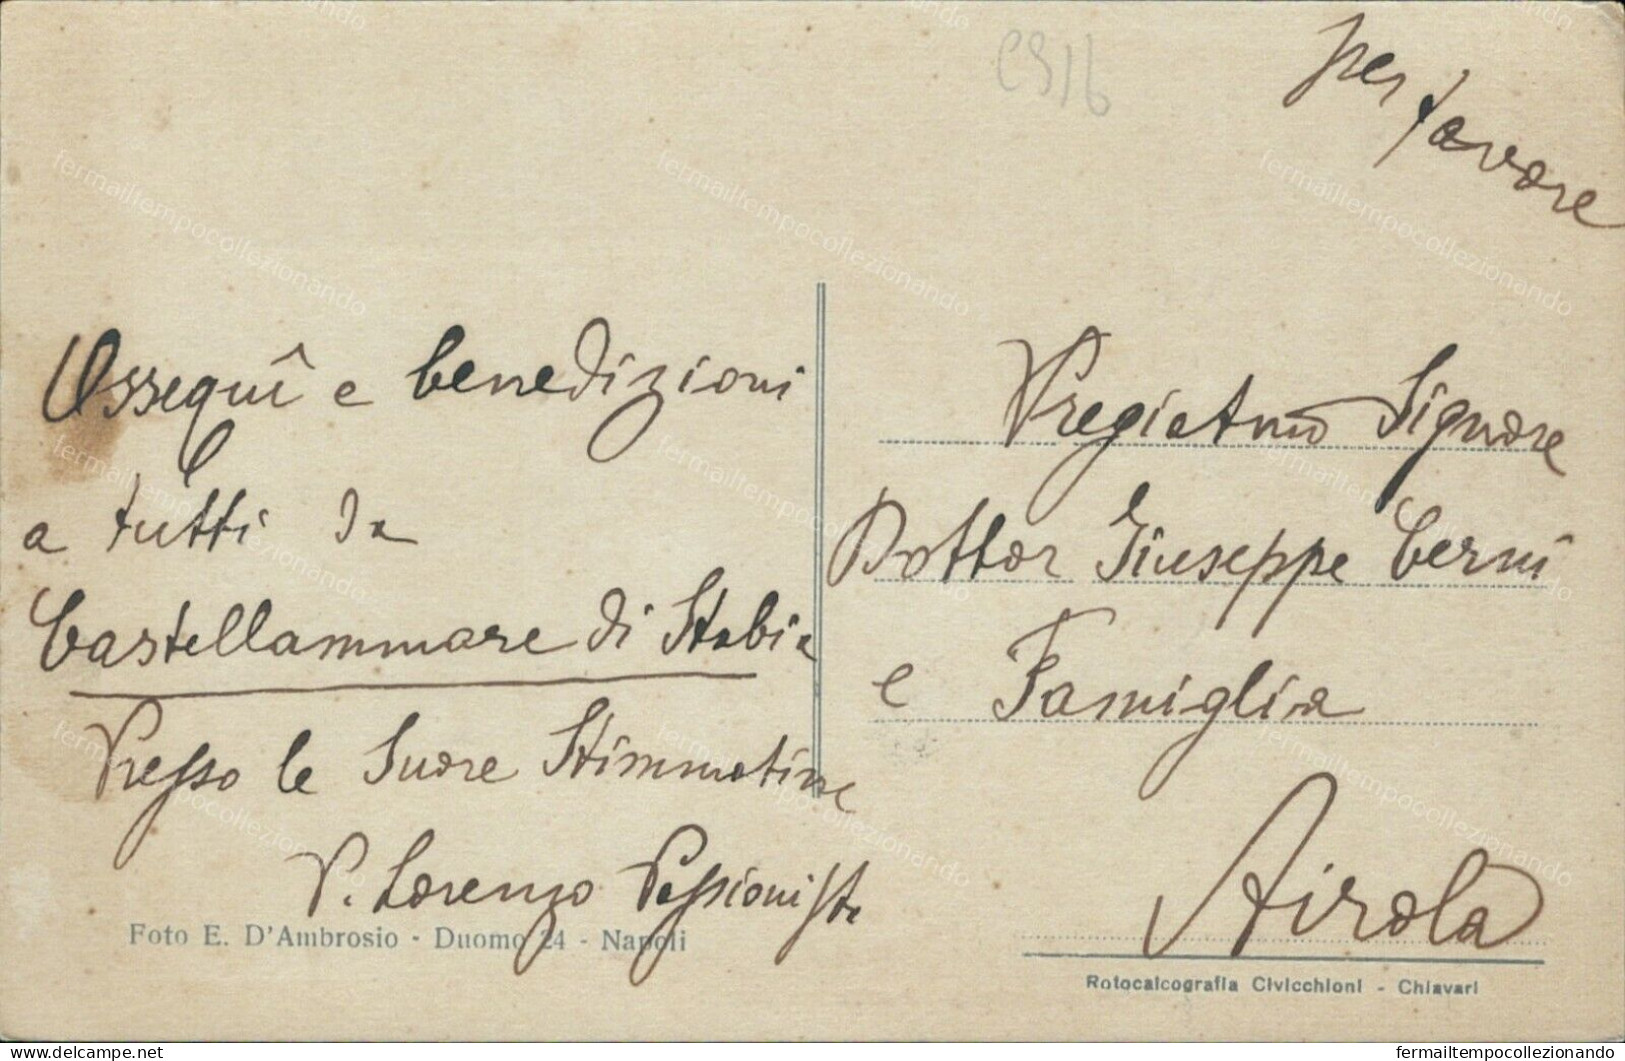 c916
per favore
Ossequî e benedizioni
a tutti da
Castellammare di Stabia
Presso le Suore Stimmatine
P. Lorenzo Passionista
Foto E. D'Ambrosio - Duomo 24 - Napoli
Pregiatmo Signore
Dottor Giuseppe Cerni
e Famiglia
Airola
Rotocalcografia Civicchioni - Chiavari
fermailtempocollezionando
delcampe.net
fermailtempocollezionando